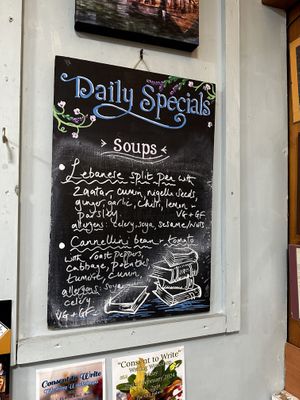 Daily Specials
Soups
Lebanese split pea with
zaatar, cumin, nigella seeds,
ginger, garlic, chilli, lemon +
parsley. VG + GF
allergens: celery, soya, sesame/nuts
Cannellini bean + tomato
with roast peppers,
cabbage, potato,
cumin.
allergens: soya
celery
VG + GF
Consent to Write
"Consent to Write"